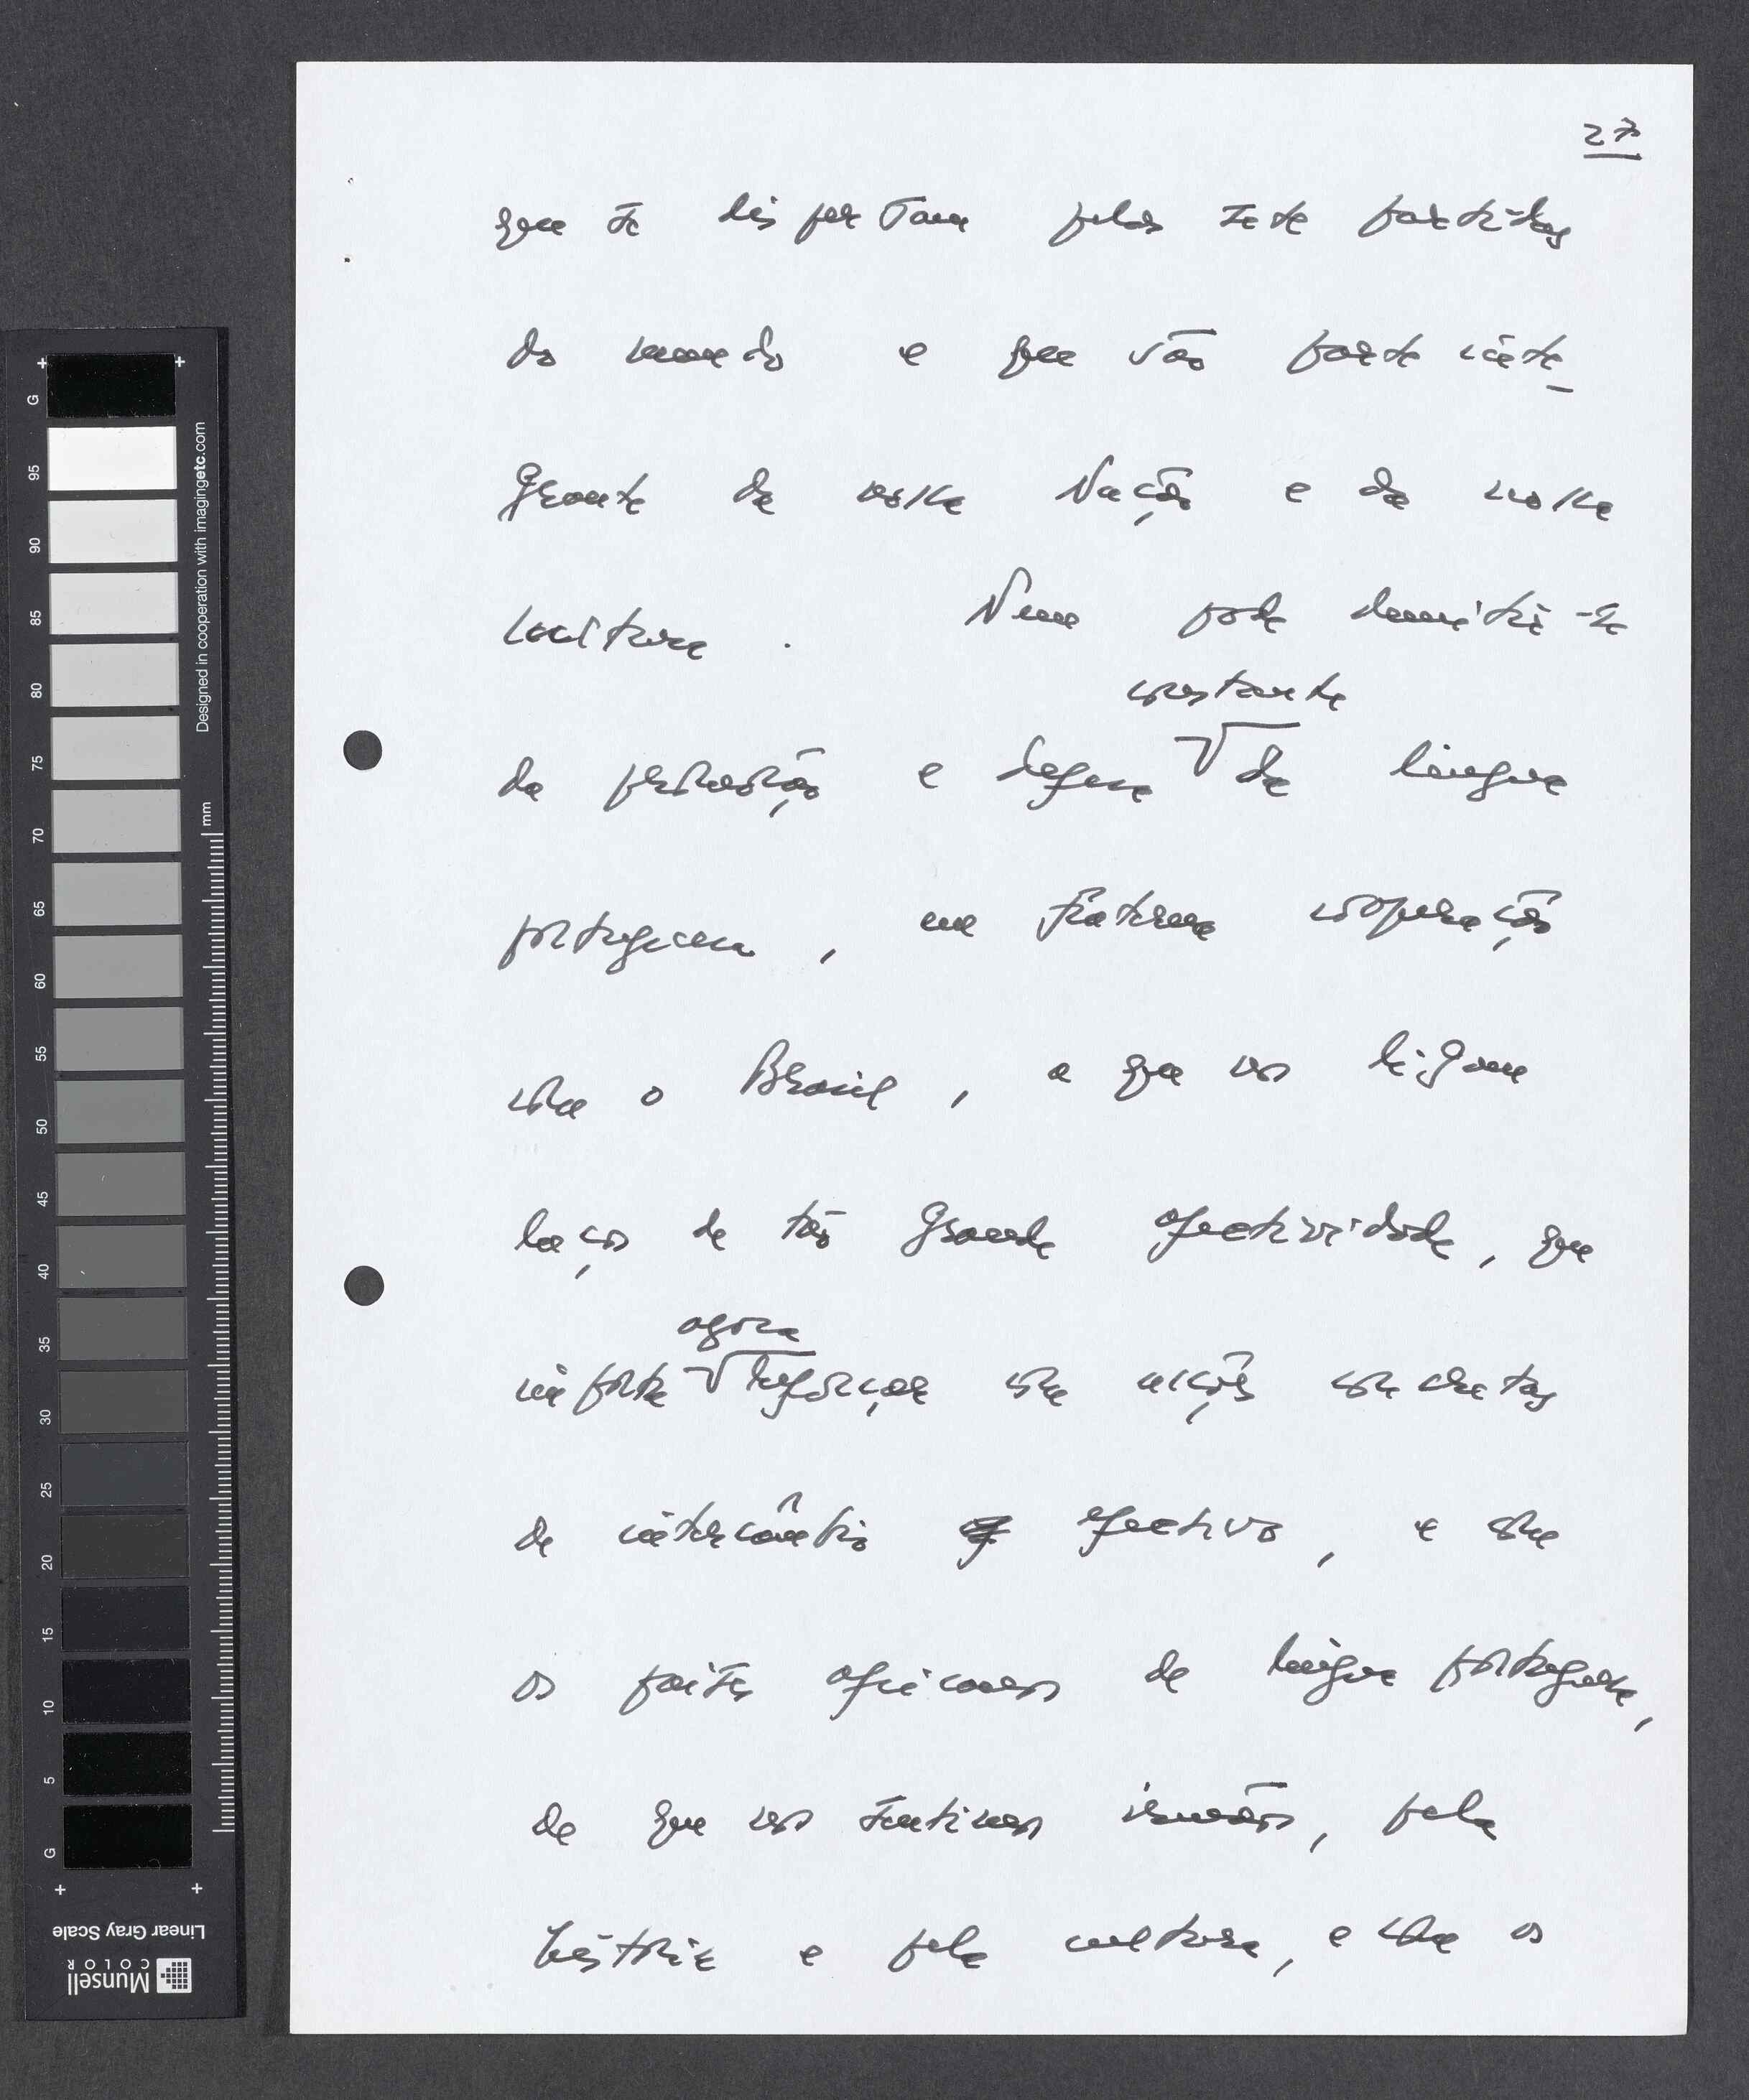 27
que se dispersam pelas sete partidas
do mundo e que são parte inte-
grante da nossa Nação e da nossa
cultura. Nem pode demitir-se
constante
da promoção e defesa da língua
portuguesa, em fraterna cooperação
com o Brasil, a que nos ligam
laços de tão grande afectividade, que
agora
importa reforçar com acções concretas
de intercâmbio efectivo, e com
os países africanos de língua portuguesa,
de que nos sentimos irmãos, pela
história e pela cultura, e com os
G
95
90
85
80
75
70
65
60
55
50
45
40
35
30
25
20
15
10
5
G
mm
Designed in cooperation with imagingetc.com
Linear Gray Scale
Munsell
COLOR